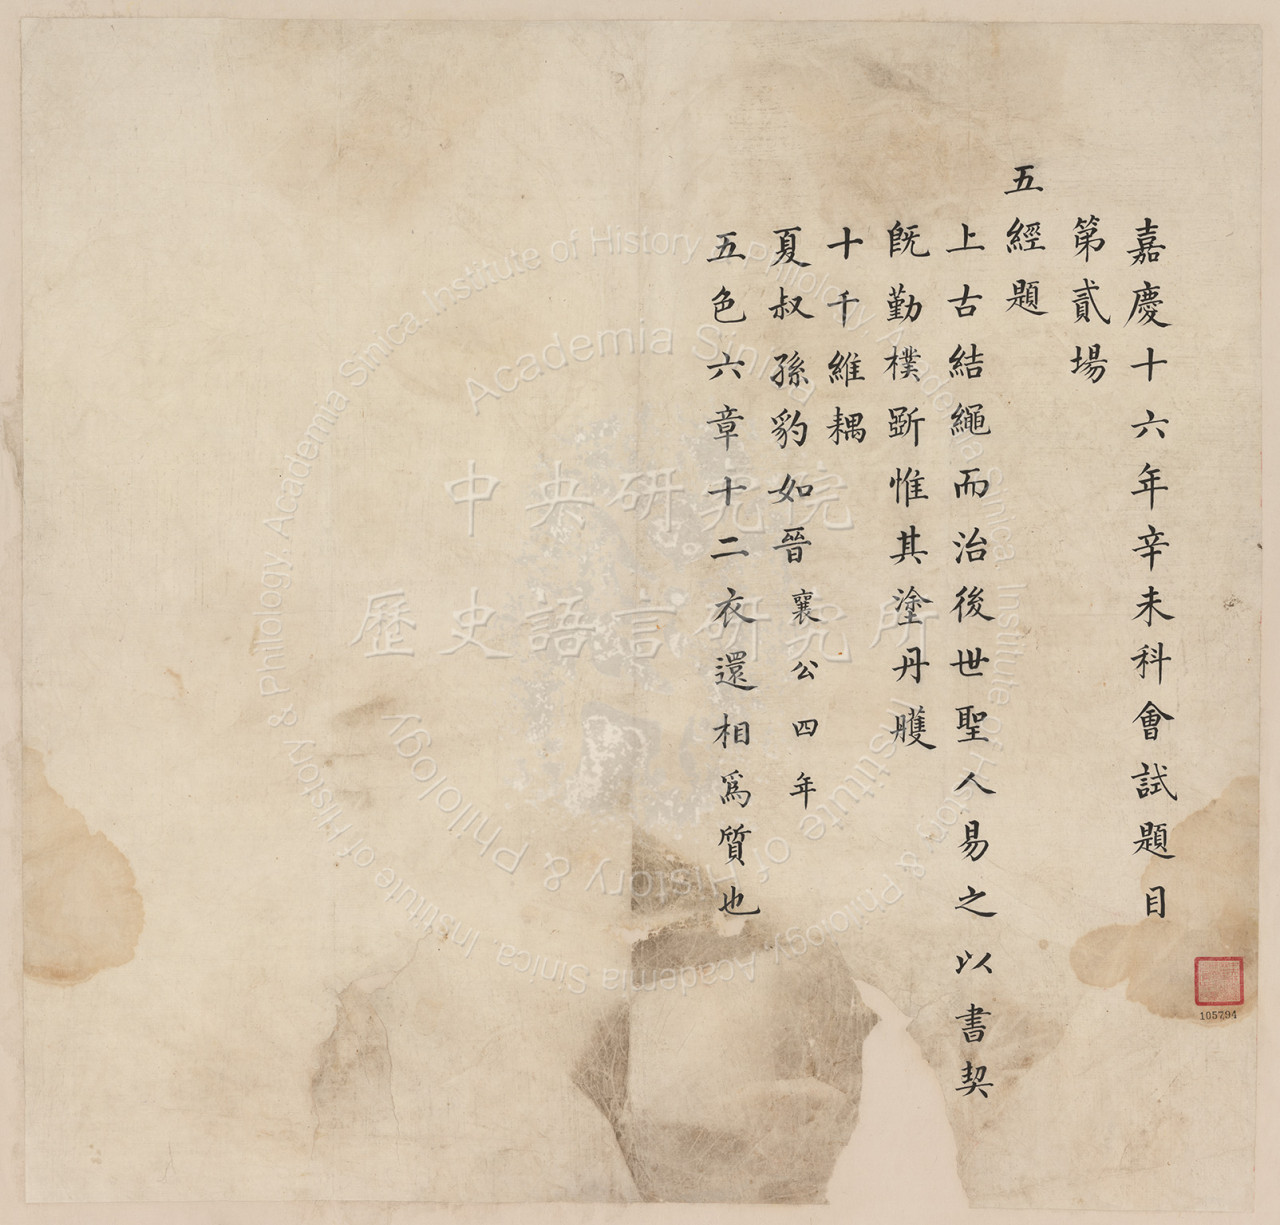 嘉慶十六年辛未科會試題目
第貳場
五經題
上古結繩而治後世聖人易之以書契
旣勤樸斲惟其塗丹雘
十千維耦
夏叔孫豹如晉襄公四年
五色六章十二衣還相爲質也
105794
中央研究院
歷史語言研究所
Academia Sinica
Institute of History & Philology Academia Sinica. Institute of History & Philology Academia Sinica. Institute of History & Philology Academia Sinica.